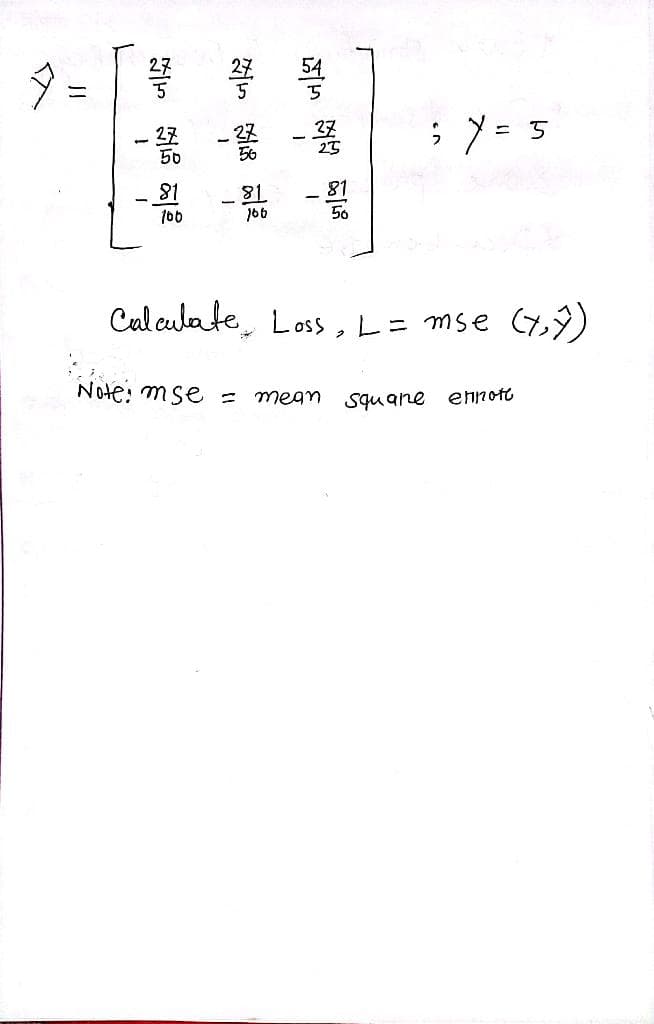 ŷ = [ 27/5 27/5 54/5
-27/50 -27/50 -27/25
-81/100 -81/100 -81/50 ] ; y = 5
Calculate, Loss, L = mse (y,ŷ)
Note: mse = mean square error